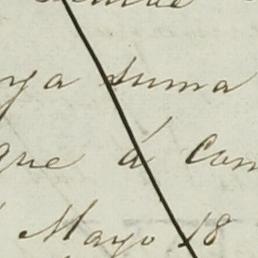 ya suma
que á com
Mayo 18